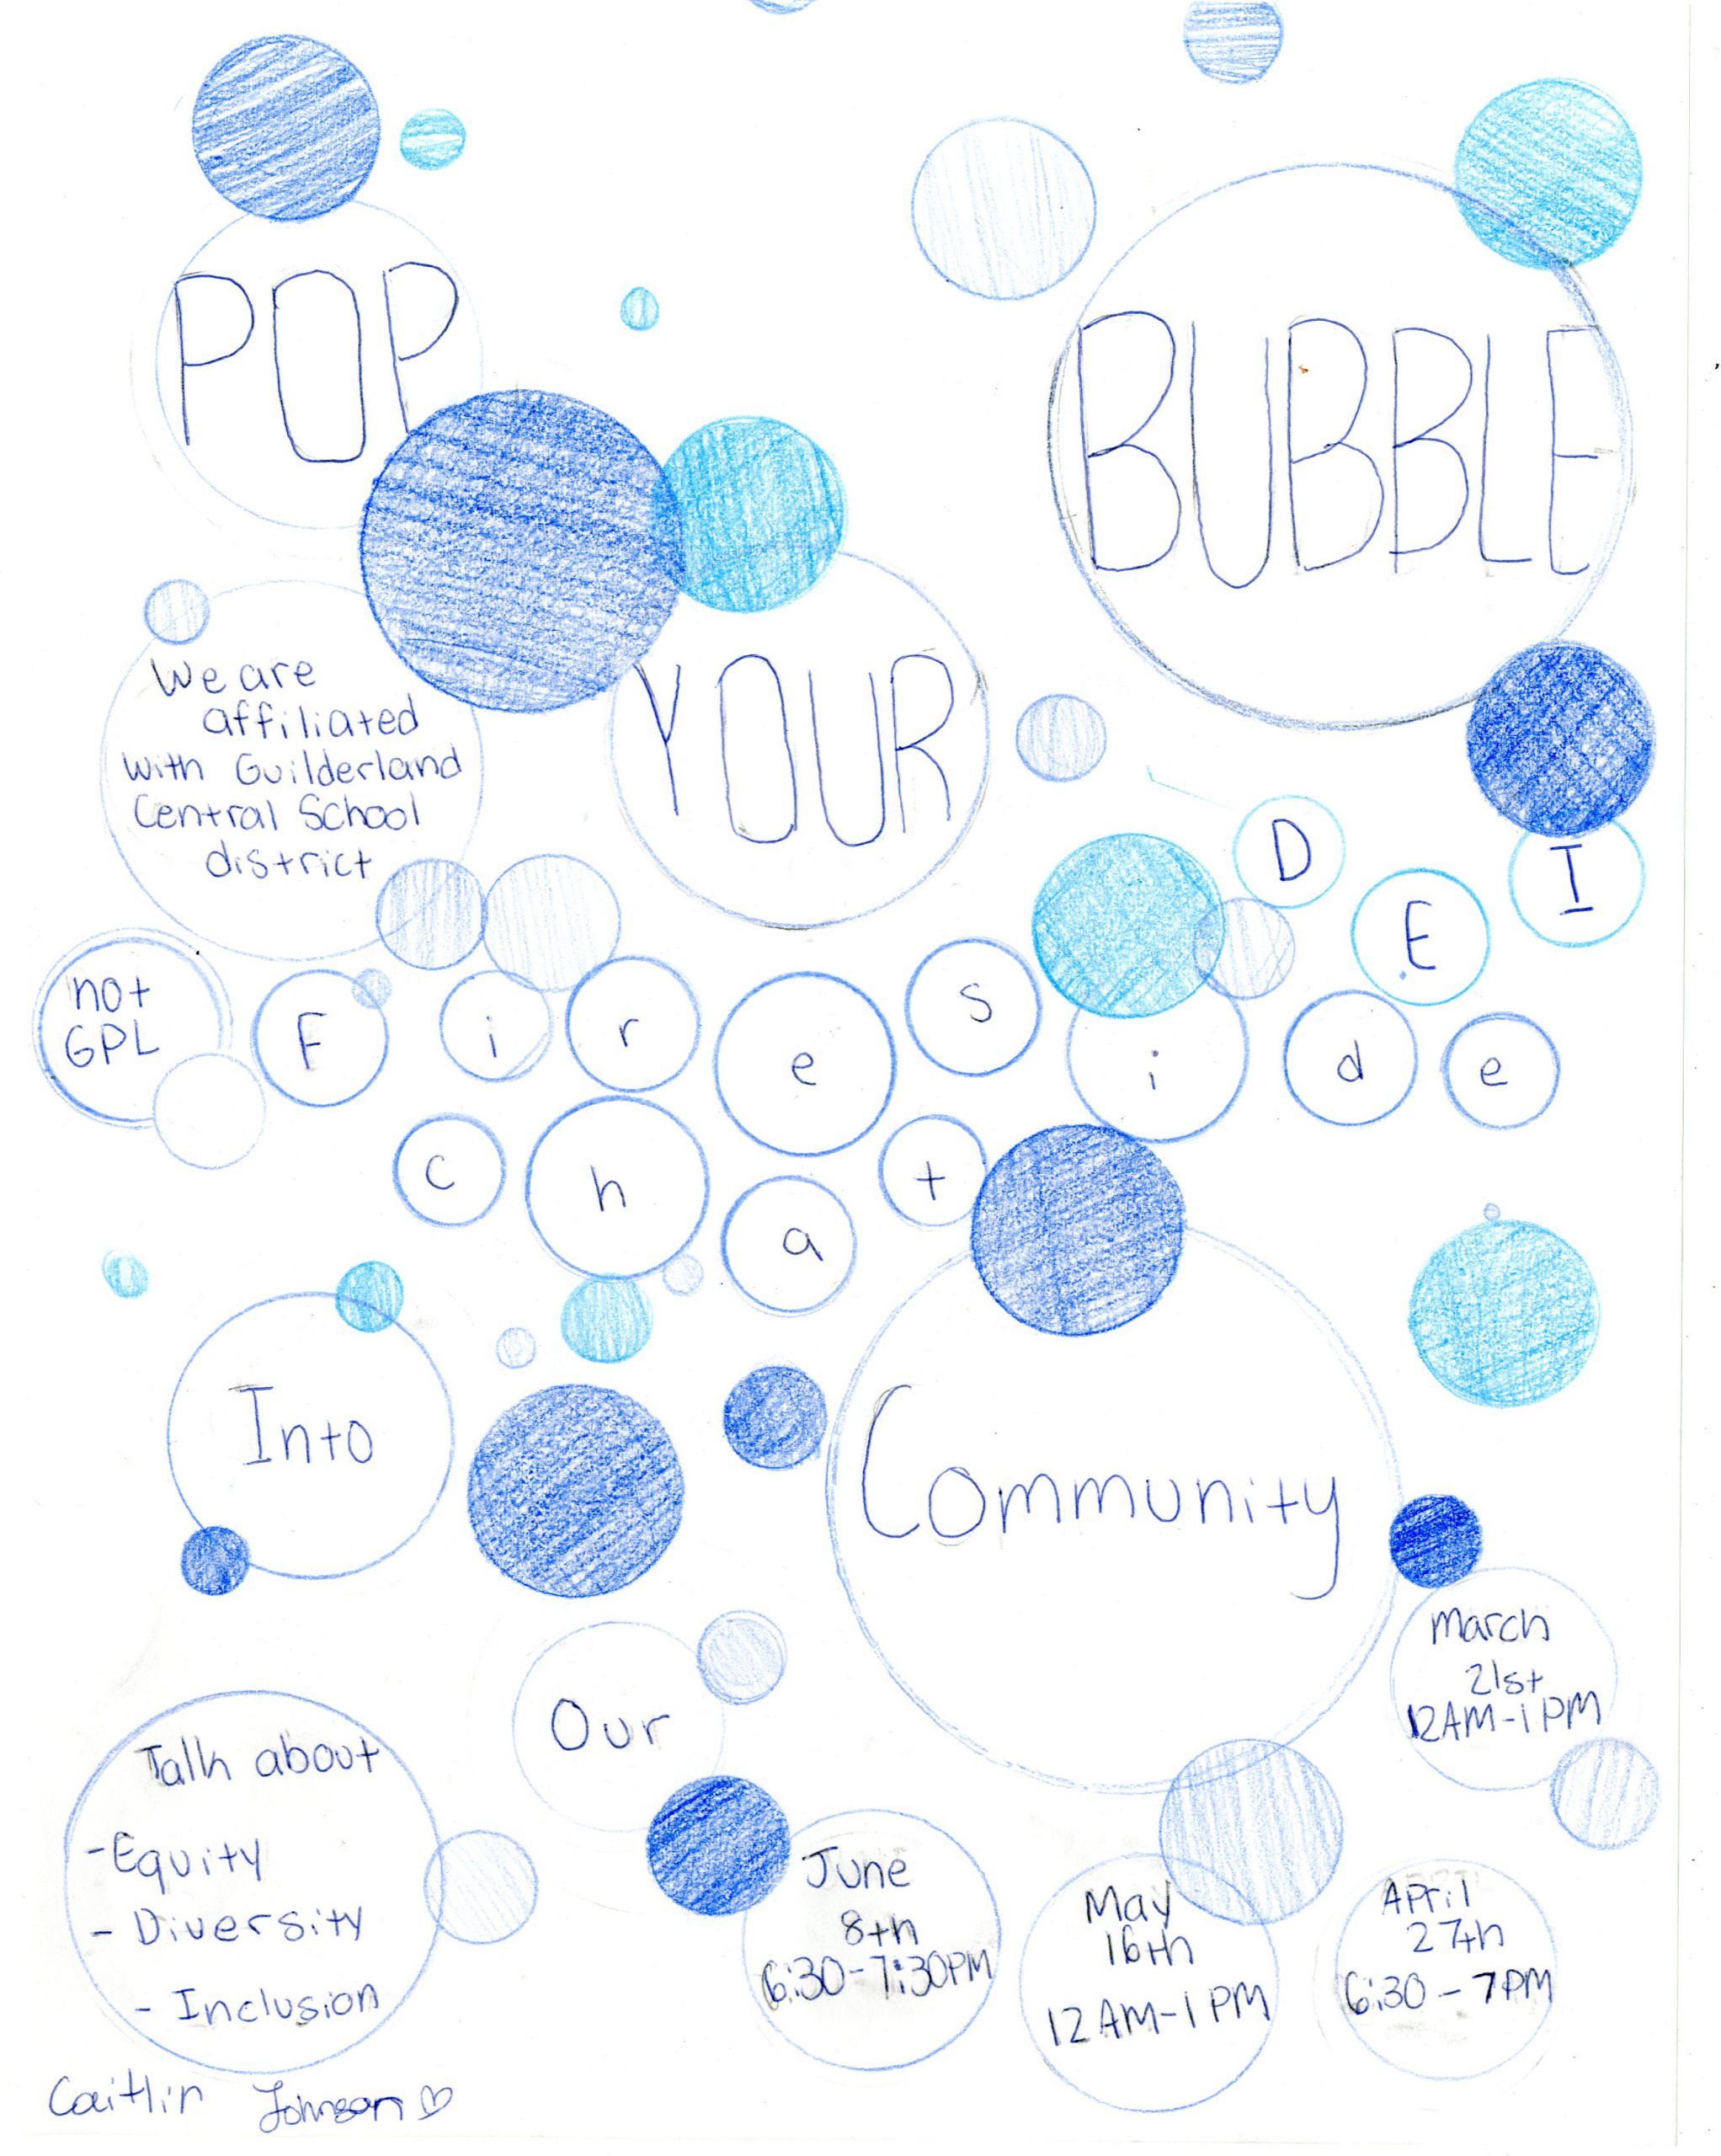 POP
YOUR
BUBBLE
We are
affiliated
with Guilderland
Central School
district
not
GPL
DEI
Fireside
chat
Into
Our
Community
Talk about
- Equity
- Diversity
- Inclusion
March
21st
12AM-1PM
April
27th
6:30-7PM
May
16th
12AM-1PM
June
8th
6:30-7:30PM
Caitlin Johnson